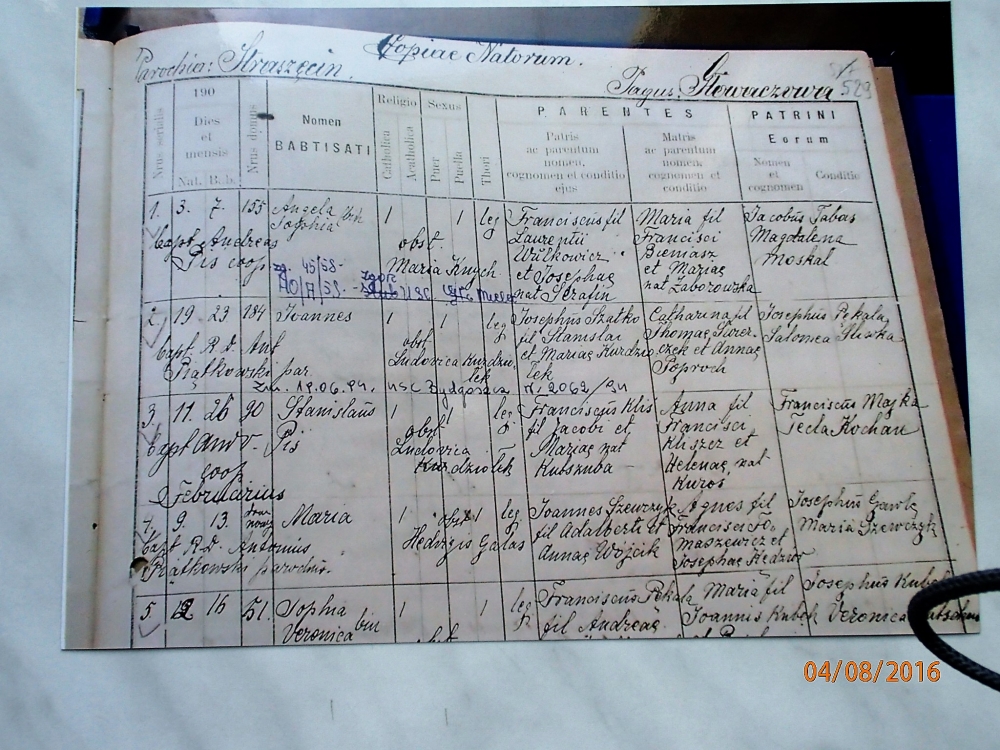 Copiae Natorum.
Parochia: Straszęcin.
Pagus: Głowaczowa
529
Nrus serialis
190
Dies et mensis
Nat. Bab.
Nrus domus
Nomen
BABTISATI
Religio
Catholica
Acatholica
Sexus
Puer
Puella
Thori
PARENTES
Patris
ac parentum
nomen,
cognomen et conditio
ejus
Matris
ac parentum
nomen,
cognomen et
conditio
PATRINI
Eorum
Nomen
et
cognomen
Conditio
1. 3. 7. 155 Angela 1 1 leg Franciscus fil Maria fil Jacobus Tabas
Sophia Laurentii Francisci Magdalena
bapt. Andreas obst. Wulkowicz Bieniasz Moskal
Pis coop Maria Knych et Josephae et Mariae
nat Serafin nat Zaborowska
zg. 45/58-
USC
2. 19 23 184 Joannes 1 1 leg Josephus Szatko Catharina fil Josephus Pękala
fil Stanislai Thomae Salomea Śliwka
bapt. R.D. Ant obst et Mariae Kurdzio czek et Annae
Piątkowski par. Ludovica Kurdziołek łek Toproch
Zm. 19.06.94. USC Bydgoszcz nr. 2062/94
3. 11 26 90 Stanislaus 1 1 leg Franciscus Kliś Anna fil Franciscus Majka
fil Jacobi et Francisci Tecla Kochan
bapt Andr. Pis obst Mariae nat Kliszcz et
coop Ludovica Kurdziołek Helenae nat
Kuroś
Februarius
4. 9. 13. Maria 1 1 leg Joannes Szewczyk Agnes fil Josephus Gawle
obst fil Adalberti et Francisci To Maria Szewczyk
bapt R.D. Antonius Hedvigis Galas Annae Wójcik maszewicz et
Piątkowski parochus Josephae Kędzior
5. 12 16 51. Sophia 1 1 leg Franciscus Pękala Maria fil Josephus Kubek
Veronica bin fil Andreae Joannis Kubek Veronica
04/08/2016